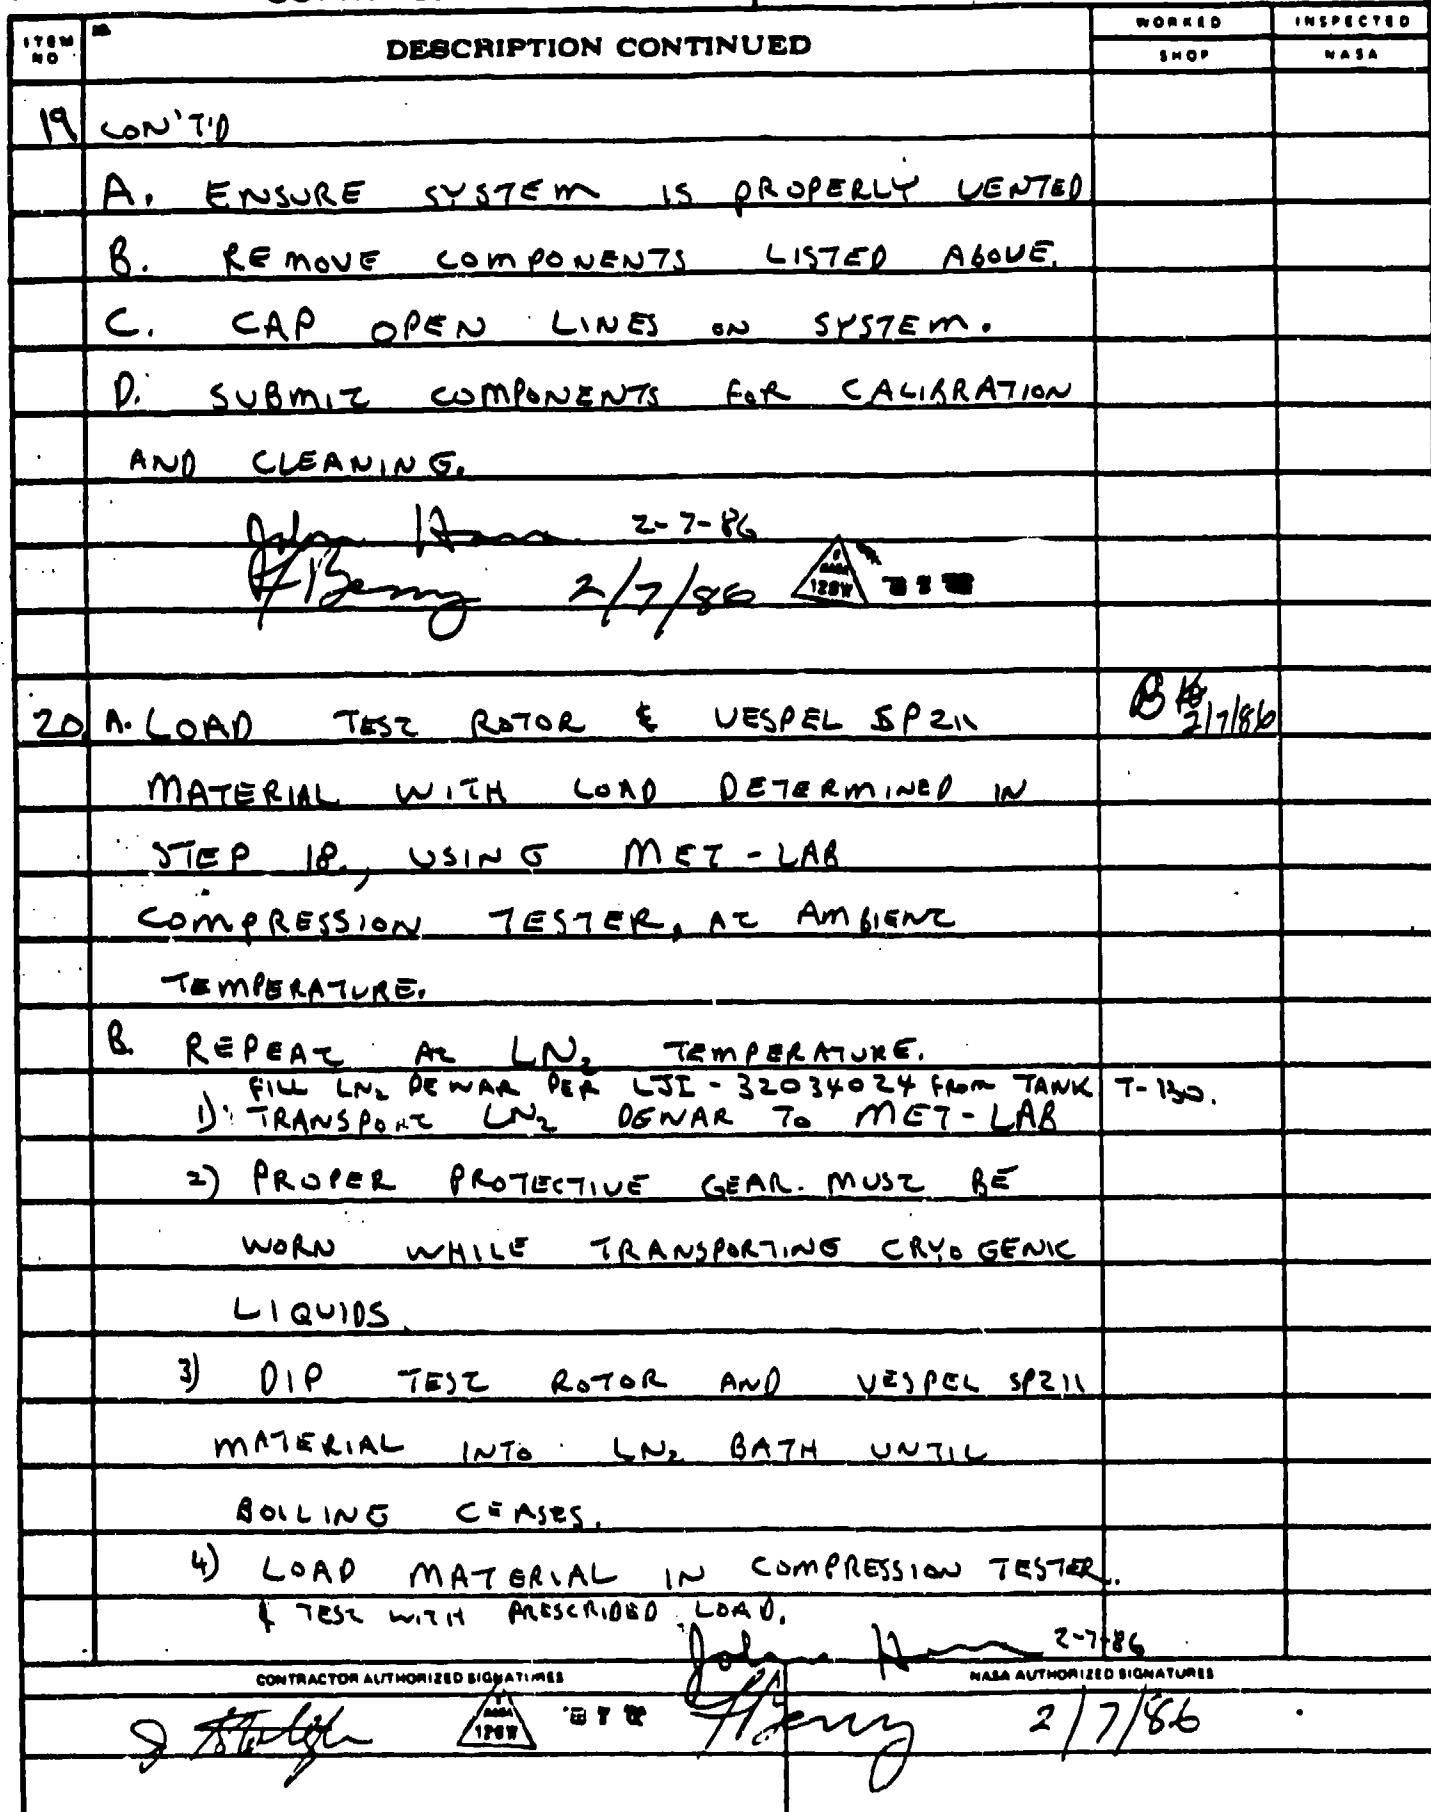 ITEM NO
DESCRIPTION CONTINUED
WORKED
INSPECTED
SHOP
NASA
19 CON'T'D
A. ENSURE SYSTEM IS PROPERLY VENTED
B. REMOVE COMPONENTS LISTED ABOVE.
C. CAP OPEN LINES ON SYSTEM.
D. SUBMIT COMPONENTS FOR CALIBRATION
AND CLEANING.
John 2-7-86
Berry 2/7/86 NASA
20 A. LOAD TEST ROTOR & VESPEL SP211 2/7/86
MATERIAL WITH LOAD DETERMINED IN
STEP 18, USING MET-LAB
COMPRESSION TESTER, AT AMBIENT
TEMPERATURE.
B. REPEAT AT LN2 TEMPERATURE.
FILL LN2 DEWAR PER LJI-32034024 FROM TANK T-130.
1) TRANSPORT LN2 DEWAR TO MET-LAB
2) PROPER PROTECTIVE GEAR MUST BE
WORN WHILE TRANSPORTING CRYOGENIC
LIQUIDS.
3) DIP TEST ROTOR AND VESPEL SP211
MATERIAL INTO LN2 BATH UNTIL
BOILING CEASES.
4) LOAD MATERIAL IN COMPRESSION TESTER.
& TEST WITH PRESCRIBED LOAD.
John 2-7-86
CONTRACTOR AUTHORIZED SIGNATURES
NASA AUTHORIZED SIGNATURES
NASA Berry 2/7/86